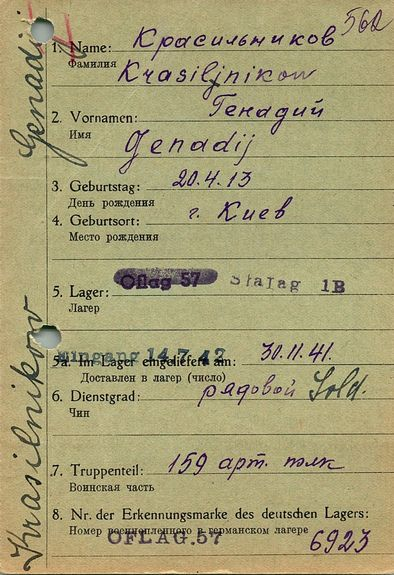 562
1. Name: Красильников
Фамилия Krasiljnikow
2. Vornamen: Генадий
Имя Genadij
3. Geburtstag: 20.4.13
День рождения
4. Geburtsort: г. Киев
Место рождения
5. Lager: Oflag 57 Stalag 1B
Лагер
Eingang 14.7.42
5a. Im Lager eingeliefert am: 30.11.41.
Доставлен в лагер (число)
6. Dienstgrad: рядовой Sold.
Чин
7. Truppenteil: 159 арт. полк
Воинская часть
8. Nr. der Erkennungsmarke des deutschen Lagers:
Номер военнопленного в германском лагере
OFLAG.57 6923
Krasilnikow Genadij